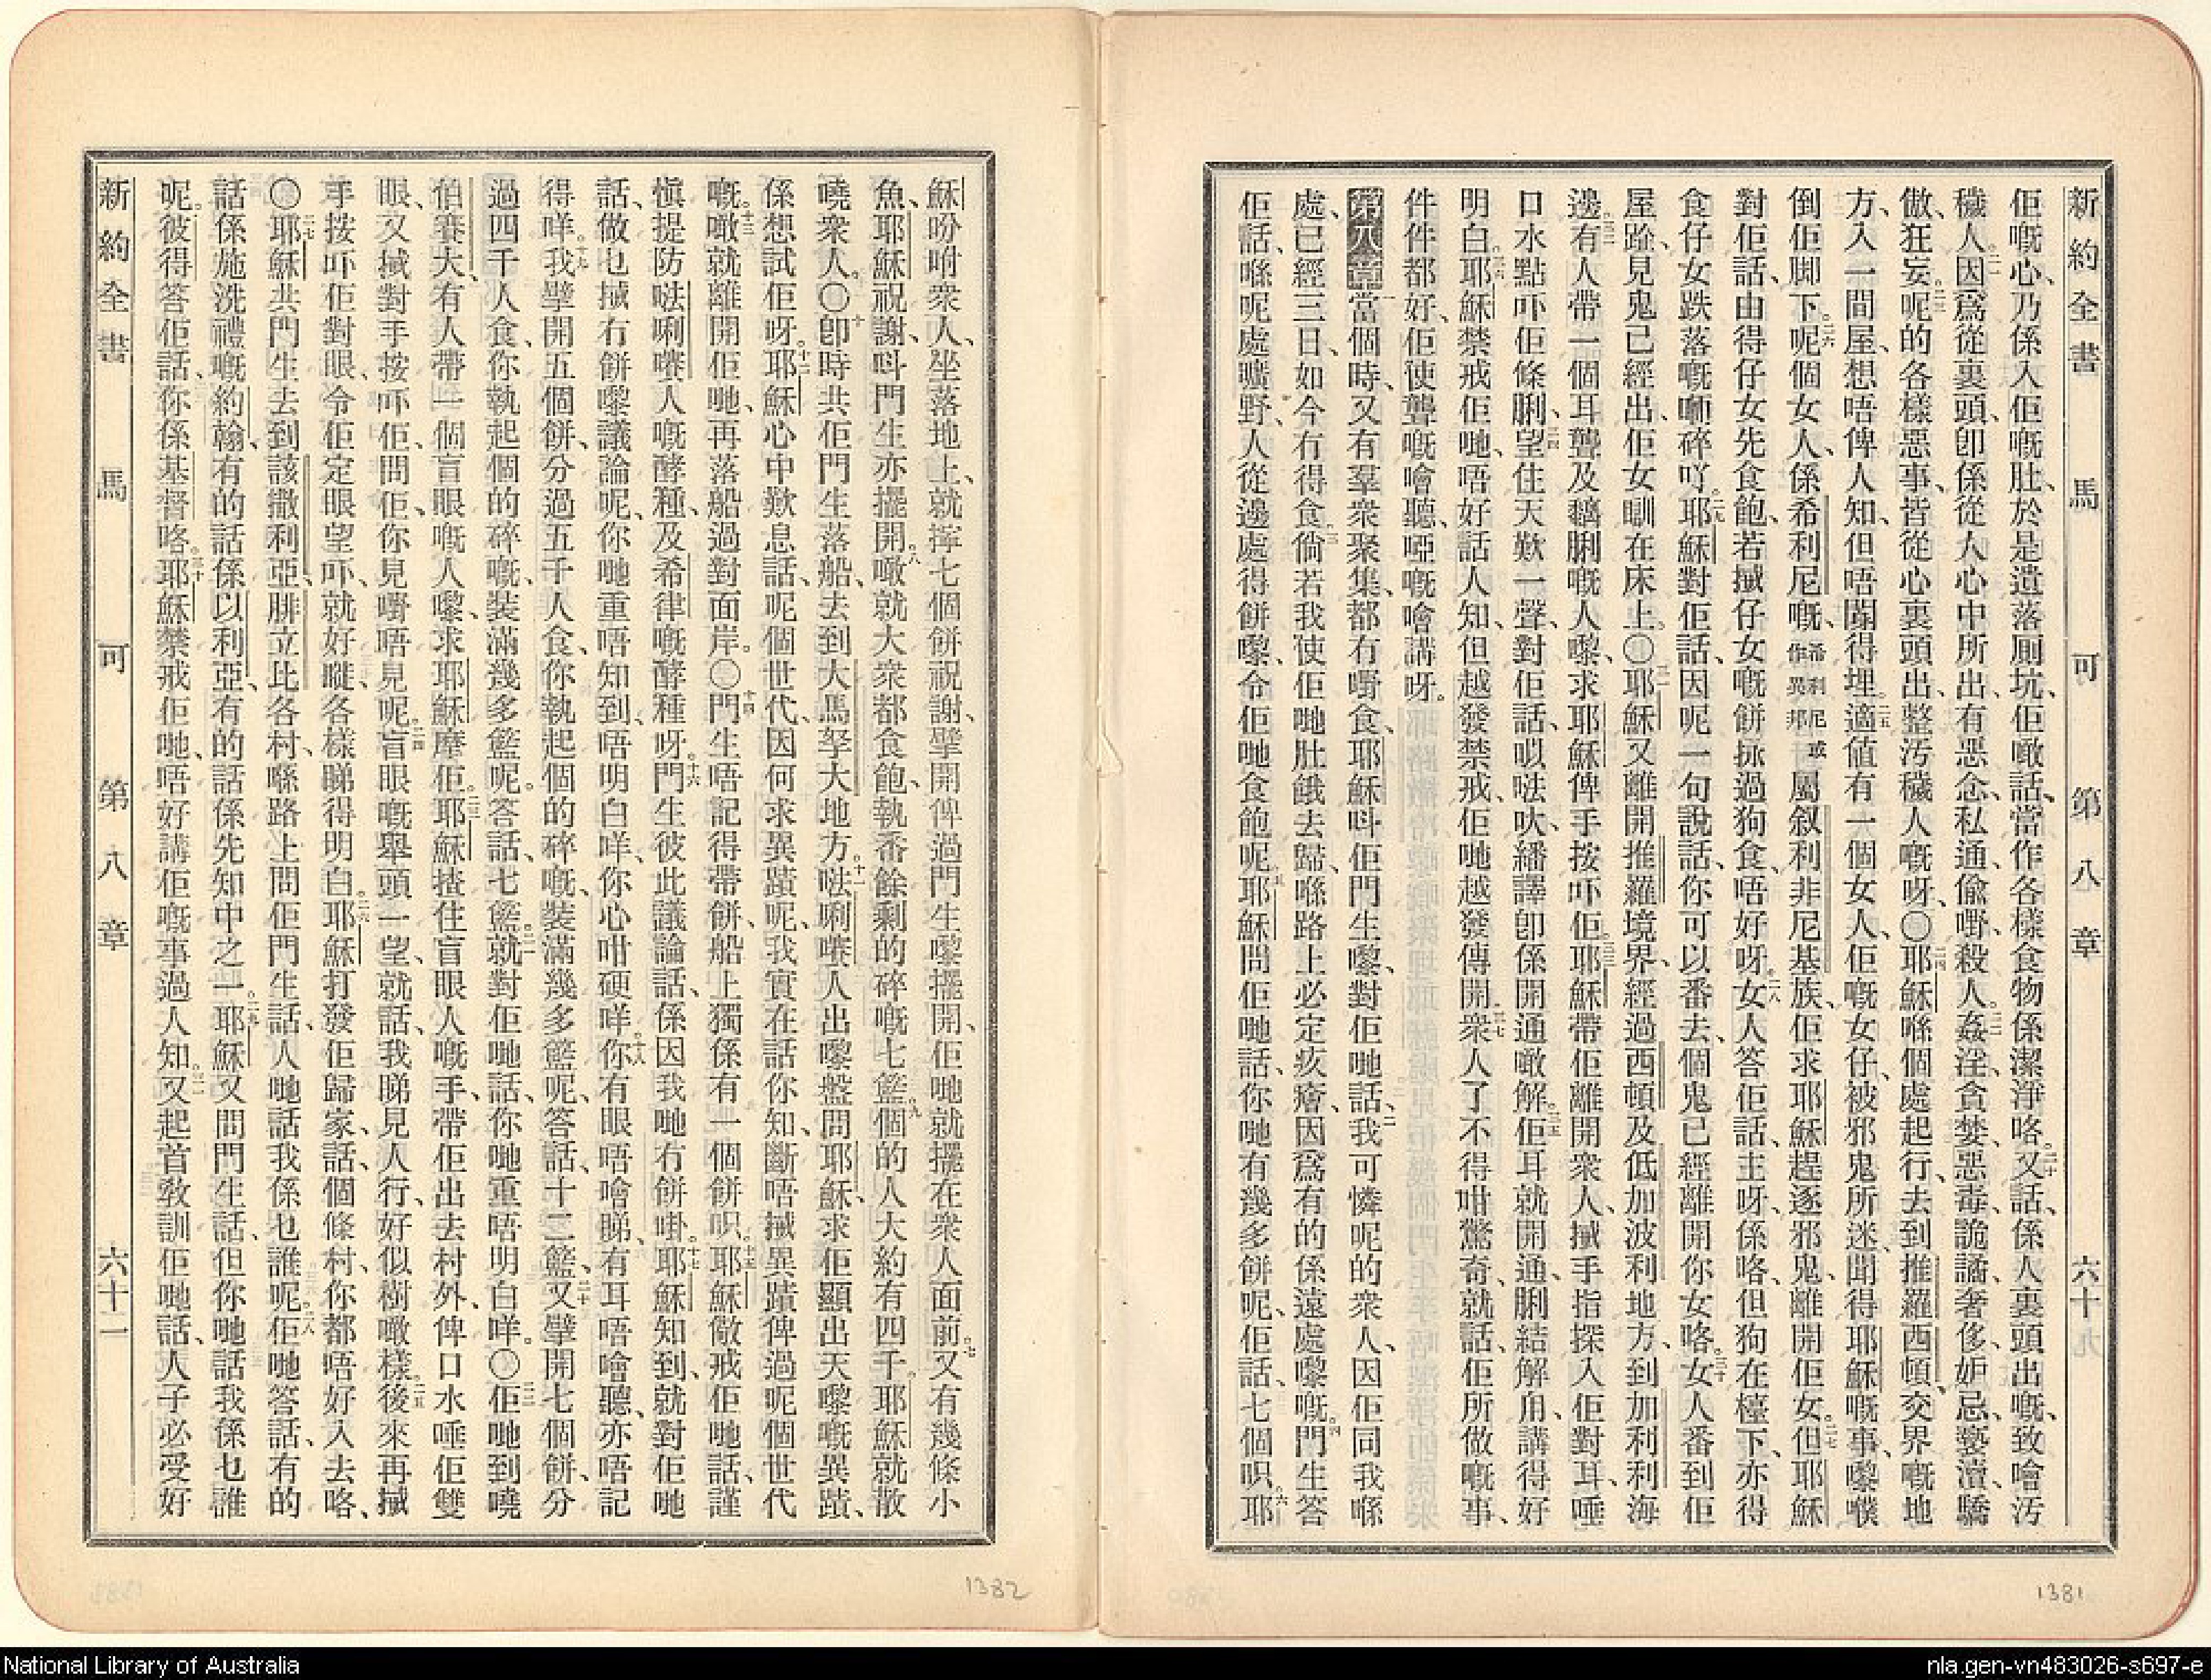 新約全書 馬可 第八章 六十九
佢嘅心、乃係入佢嘅肚、於是遺落厠坑、佢噉話、當作各樣食物係潔淨咯。二十又話、係人裏頭出嘅、致噲汚
穢人。二一因爲從裏頭、卽係從人心中所出、有惡念、私通、偷嘢、殺人。二二姦淫、貪婪、惡毒、詭譎、奢侈、妒忌、褻瀆、驕
傲、狂妄。二三呢的各樣惡事、皆從心裏頭出、整汚穢人嘅呀、〇二四耶穌喺個處起行、去到推羅西頓、交界嘅地
方、入一間屋、想唔俾人知、但唔閪得埋。二五適値有一個女人、佢嘅女仔、被邪鬼所迷、聞得耶穌嘅事、嚟噗
倒佢脚下。二六呢個女人、係希利尼嘅、希利尼或作異邦屬叙利非尼基族、佢求耶穌趕逐邪鬼、離開佢女。二七但耶穌
對佢話、由得仔女先食飽、若搣仔女嘅餅、掭過狗食、唔好呀。二八女人答佢話、主呀、係咯、但狗在檯下、亦得
食仔女跌落嘅嚹碎吖。二九耶穌對佢話、因呢一句說話、你可以番去、個鬼已經離開你女咯。三十女人番到佢
屋跄、見鬼已經出、佢女瞓在床上。〇三一耶穌又離開推羅境界、經過西頓、及低加波利地方、到加利利海
邊。三二有人帶一個耳聾及羇脷嘅人嚟、求耶穌俾手按吓佢。三三耶穌帶佢離開衆人、搣手指探入佢對耳、唾
口水點吓佢條脷、三四望住天歎一聲、對佢話、㕥呿吹、繙譯卽係開通噉解。三五佢耳就開通、脷結解甪、講得好
明白。三六耶穌禁戒佢哋、唔好話人知、但越發禁戒、佢哋越發傳開。三七衆人了不得咁驚奇、就話、佢所做嘅事、
件件都好、佢使聾嘅噲聽、啞嘅噲講呀。
第八章一當個時、又有羣衆聚集、都冇嘢食、耶穌呌佢門生嚟、對佢哋話、二我可憐呢的衆人、因佢同我喺
處、已經三日、如今冇得食。三倘若我使佢哋肚餓去歸、喺路上必定疚癐、因爲有的係遠處嚟嘅。四門生答
佢話、喺呢處曠野、人從邊處得餅嚟、令佢哋食飽呢。五耶穌問佢哋話、你哋有幾多餅呢、佢話、七個呮。六耶
穌吩咐衆人、坐落地上、就擰七個餅祝謝、擘開俾過門生嚟擺開、佢哋就擺在衆人面前。七又有幾條小
魚、耶穌祝謝、呌門生亦擺開。八噉就大衆都食飽、執番餘剩的碎嘅七籃。九個的人大約有四千、耶穌就散
嘵衆人。〇十卽時共佢門生落船、去到大馬拏大地方。十一㗁唎㘔人出嚟盤問耶穌、求佢顯出天嚟嘅異蹟、
係想試佢呀。十二耶穌心中歎息話、呢個世代、因何求異蹟呢、我實在話你知、斷唔搣異蹟俾過呢個世代
嘅。十三噉就離開佢哋、再落船過對面岸。〇十四門生唔記得帶餅、船上獨係有一個餅呮。十五耶穌儆戒佢哋話、謹
愼提防㗁唎㘔人嘅酵種、及希律嘅酵種呀。十六門生彼此議論話、係因我哋冇餅啩、十七耶穌知到、就對佢哋
話、做乜搣冇餅嚟議論呢、你哋重唔知到、唔明白咩、你心咁硬咩。十八你有眼唔噲睇、有耳唔噲聽、亦唔記
得咩。十九我擘開五個餅、分過五千人食、你執起個的碎嘅、裝滿幾多籃呢、答話、十二籃、二十又擘開七個餅、分
過四千人食、你執起個的碎嘅、裝滿幾多籃呢。答話、七籃。二一就對佢哋話、你哋重唔明白咩。〇二二佢哋到嘵
伯賽大、有人帶一個盲眼嘅人嚟、求耶穌摩佢。二三耶穌揸住盲眼人嘅手、帶佢出去村外、俾口水唾佢雙
眼、又搣對手按吓佢、問佢、你見嘢唔見呢。二四盲眼嘅舉頭一望、就話、我睇見人行、好似樹噉樣。二五後來再搣
手按吓佢對眼、令佢定眼望吓、就好嘥、各樣睇得明白。二六耶穌打發佢歸家、話、個條村、你都唔好入去咯、
〇二七耶穌共門生去到該撒利亞、腓立比各村、喺路上問佢門生話、人哋話我係乜誰呢。二八佢哋答話、有的
話係施洗禮嘅約翰、有的話係以利亞、有的話係先知中之一。二九耶穌又問門生話、但你哋話我係乜誰
呢。彼得答佢話、你係基督咯。三十耶穌禁戒佢哋、唔好講佢嘅事過人知。三一又起首敎訓佢哋話、人子必受好
新約全書 馬可 第八章 六十一
1382
1381
National Library of Australia
nla.gen-vn483026-s697-e